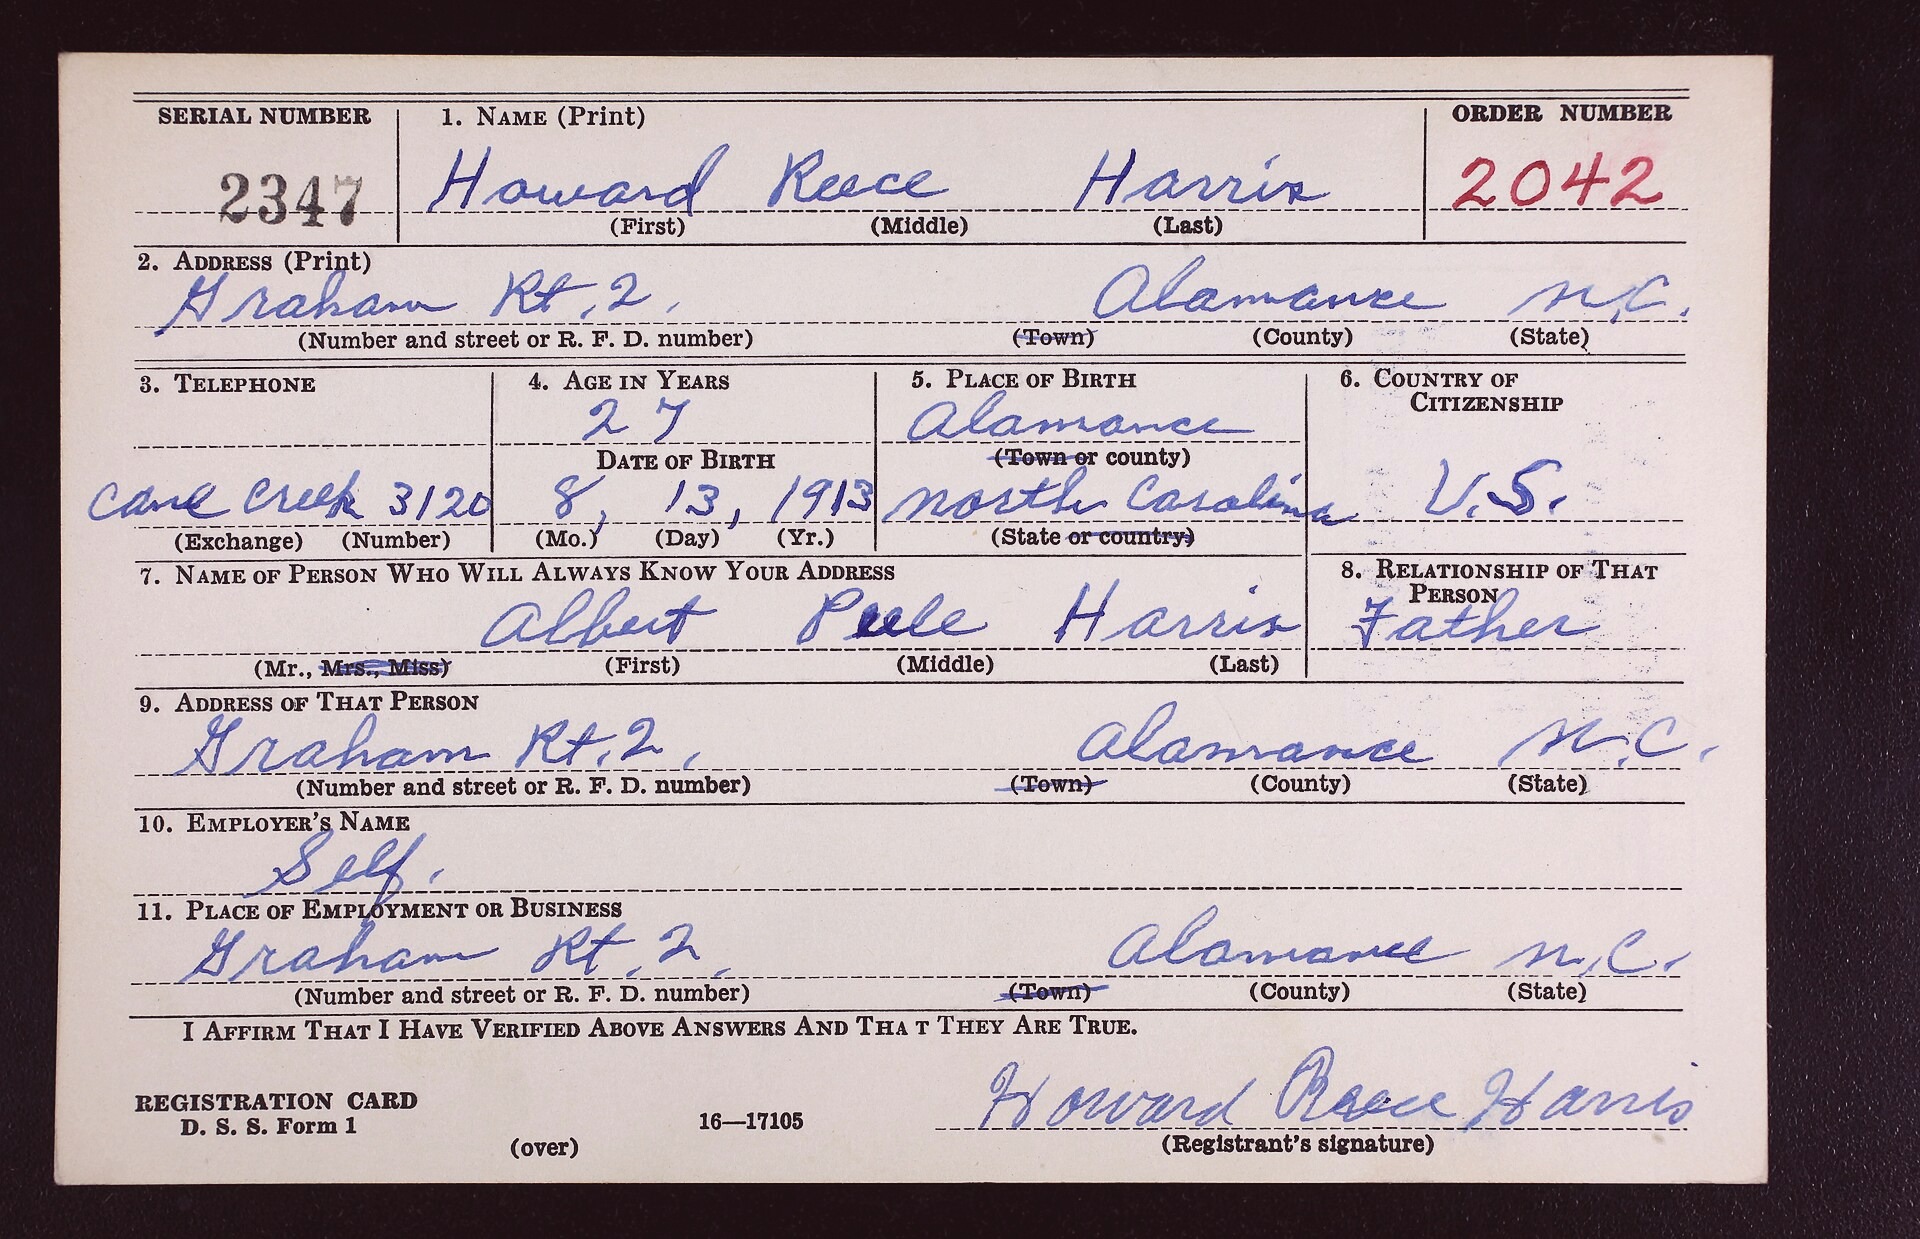 SERIAL NUMBER 1. NAME (Print) ORDER NUMBER
2347 Howard Reece Harris 2042
(First) (Middle) (Last)
2. ADDRESS (Print)
Graham Rt. 2. Alamance N.C.
(Number and street or R. F. D. number) (Town) (County) (State)
3. TELEPHONE 4. AGE IN YEARS 5. PLACE OF BIRTH 6. COUNTRY OF
CITIZENSHIP
27 Alamance
DATE OF BIRTH (Town or county)
Cane Creek 3120 8, 13, 1913 North Carolina U.S.
(Exchange) (Number) (Mo.) (Day) (Yr.) (State or country)
7. NAME OF PERSON WHO WILL ALWAYS KNOW YOUR ADDRESS 8. RELATIONSHIP OF THAT
PERSON
Albert Harris Father
(Mr., Mrs., Miss) (First) (Middle) (Last)
9. ADDRESS OF THAT PERSON
Graham Rt. 2, Alamance N.C.
(Number and street or R. F. D. number) (Town) (County) (State)
10. EMPLOYER'S NAME
Self.
11. PLACE OF EMPLOYMENT OR BUSINESS
Graham Rt. 2, Alamance N.C.
(Number and street or R. F. D. number) (Town) (County) (State)
I AFFIRM THAT I HAVE VERIFIED ABOVE ANSWERS AND THA T THEY ARE TRUE.
Howard Reece Harris
REGISTRATION CARD
D. S. S. Form 1 16—17105
(over) (Registrant's signature)